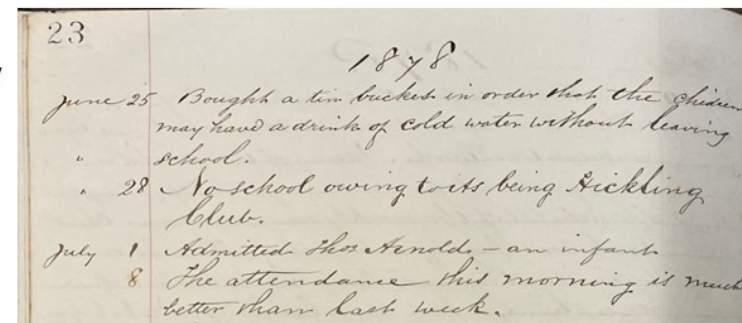 23
1878
June 25 Bought a tin bucket in order that the children
may have a drink of cold water without leaving
" school.
" 28 No school owing to its being Hickling
Club.
July 1 Admitted Thos Arnold - an infant
8 The attendance this morning is much
better than last week.